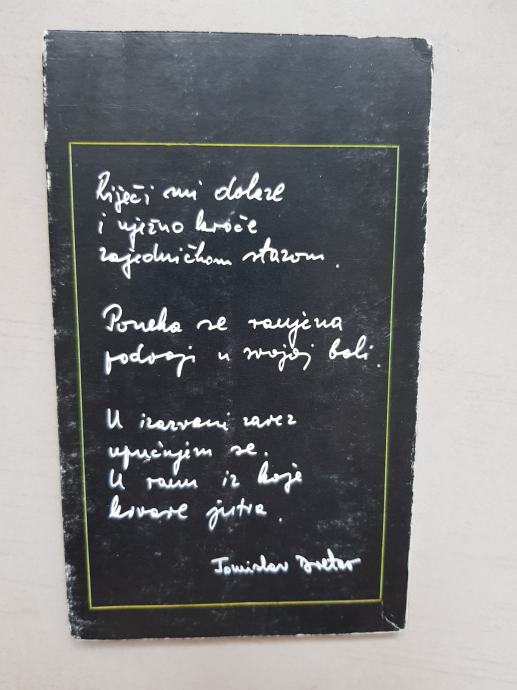 Riječi mi dolaze
i nježno kroče
zajedničkom stazom.
Poneka se ranjena
podvoji u svojoj boli.
U izazvani zarez
upućujem se.
U ranu iz koje
krvare jutra.
Tomislav Dretar